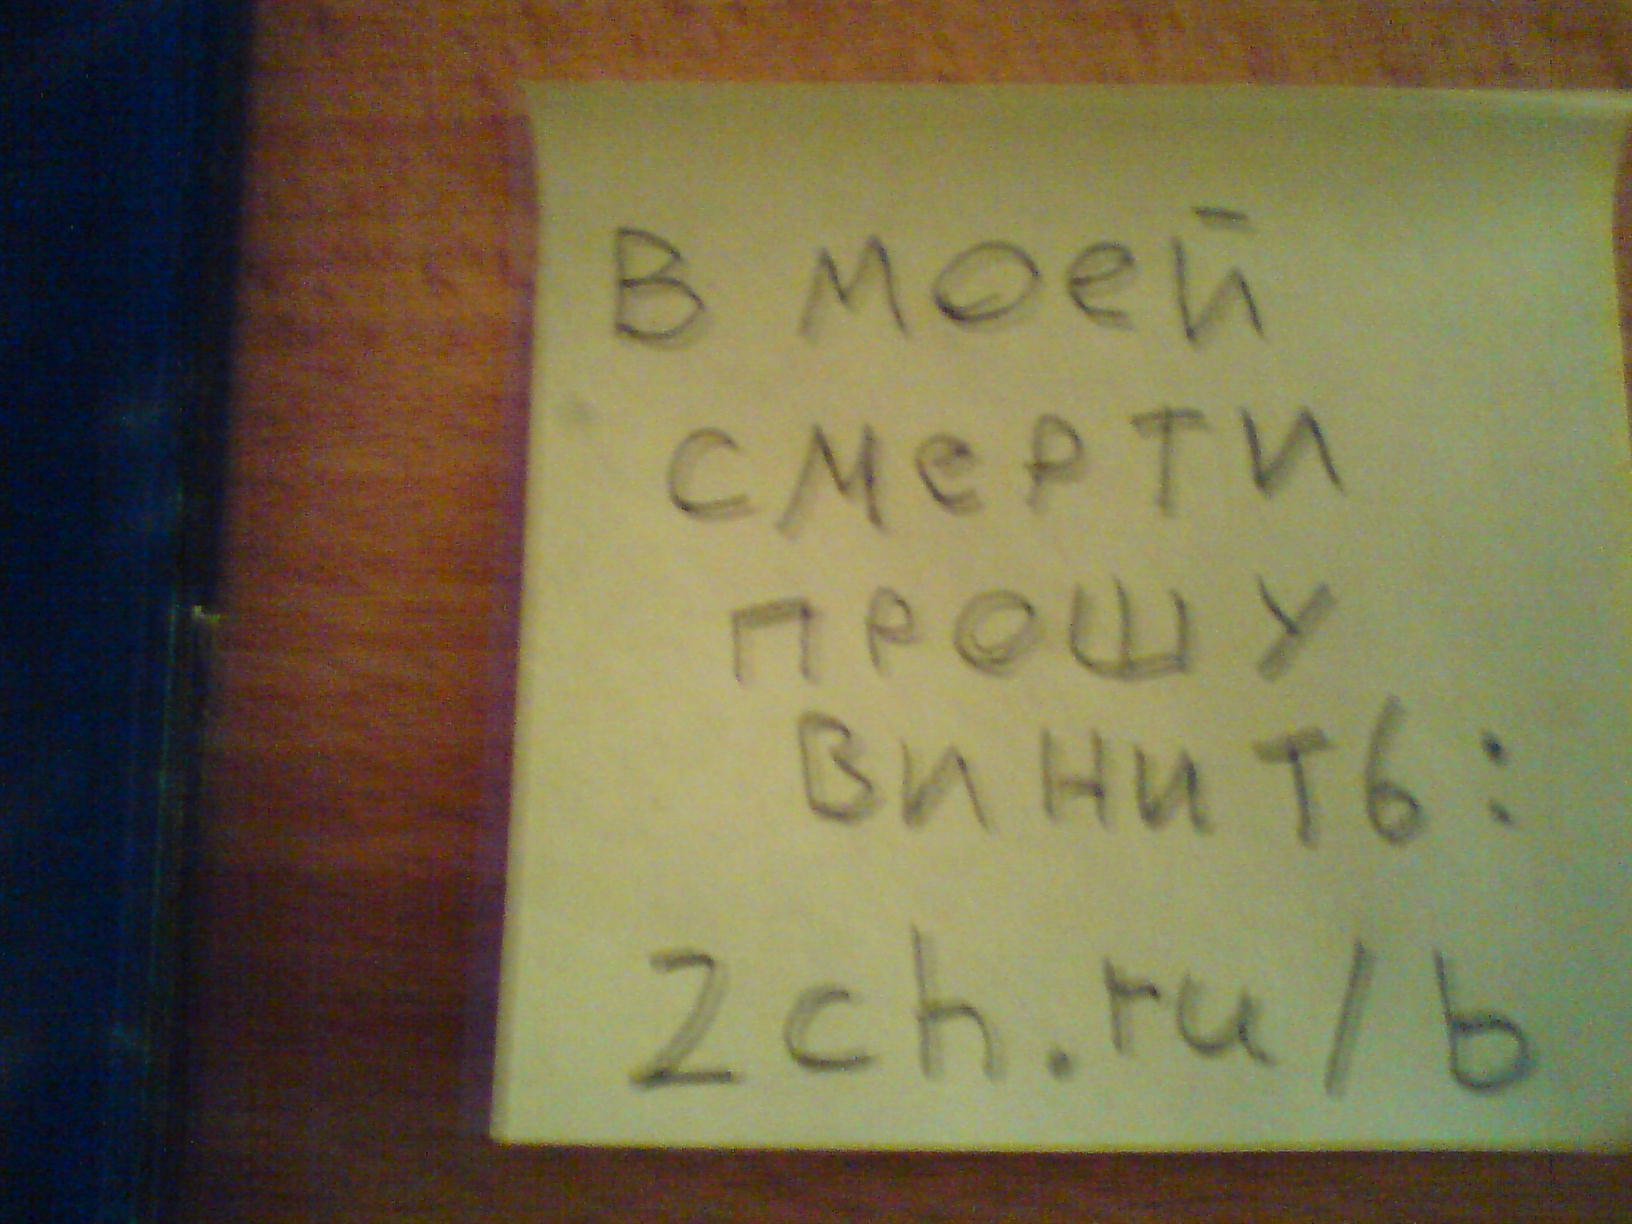 В моей
смерти
прошу
винить:
2ch.ru/b